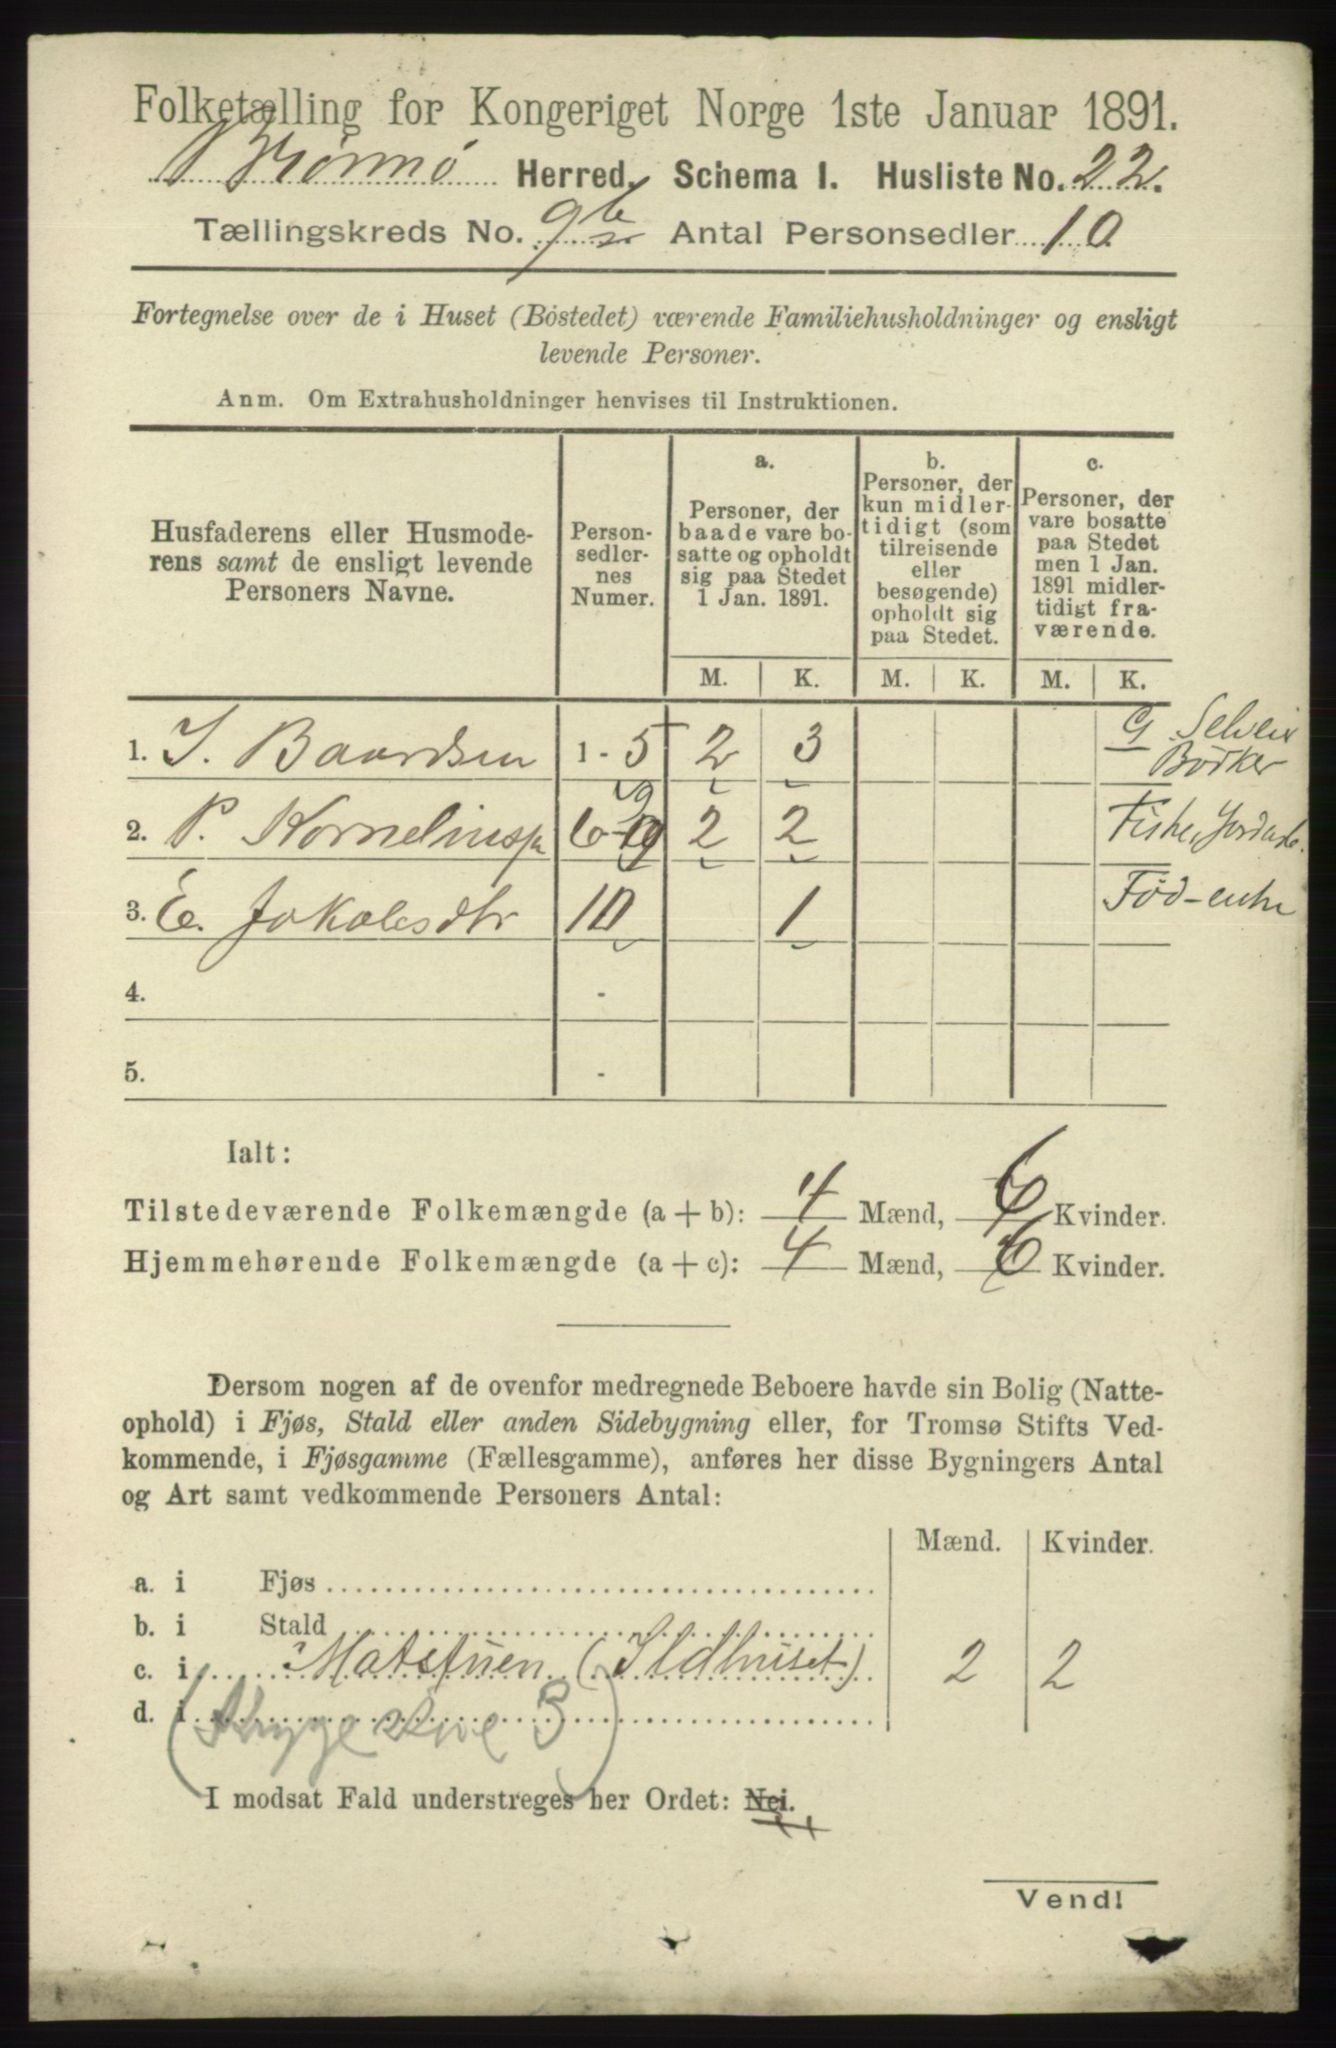 Folketælling for Kongeriget Norge 1ste Januar 1891.
Brønnø Herred. Schema I. Husliste No. 22.
Tællingskreds No. 9b Antal Personsedler 10
Fortegnelse over de i Huset (Bostedet) værende Familiehusholdninger og ensligt
levende Personer.
Anm. Om Extrahusholdninger henvises til Instruktionen.
Husfaderens eller Husmode-
rens samt de ensligt levende
Personers Navne.
Person-
sedler-
nes
Numer.
a.
Personer, der
baade vare bo-
satte og opholdt
sig paa Stedet
1 Jan. 1891.
b.
Personer, der
kun midler-
tidigt (som
tilreisende
eller
besøgende)
opholdt sig
paa Stedet.
c.
Personer, der
vare bosatte
paa Stedet
men 1 Jan.
1891 midler-
tidigt fra-
værende.
M. K. M. K. M. K.
1. I. Baardsen 1 - 5 2 3 G Selveier
Bödker
2. P. Korneliuss. 6 - 9 2 2 Fisker, Jordarb.
3. E. Jakobsdtr 10 1 Föd-enke
4. -
5. -
Ialt:
Tilstedeværende Folkemængde (a + b): 4 Mænd, 6 Kvinder.
Hjemmehørende Folkemængde (a + c): 4 Mænd, 6 Kvinder.
Dersom nogen af de ovenfor medregnede Beboere havde sin Bolig (Natte-
ophold) i Fjøs, Stald eller anden Sidebygning eller, for Tromsø Stifts Ved-
kommende, i Fjøsgamme (Fællesgamme), anføres her disse Bygningers Antal
og Art samt vedkommende Personers Antal:
Mænd. Kvinder.
a. i Fjøs
b. i Stald
c. i Matstuen (Ildhuset) 2 2
d. i
I modsat Fald understreges her Ordet: Nei.
Vend!